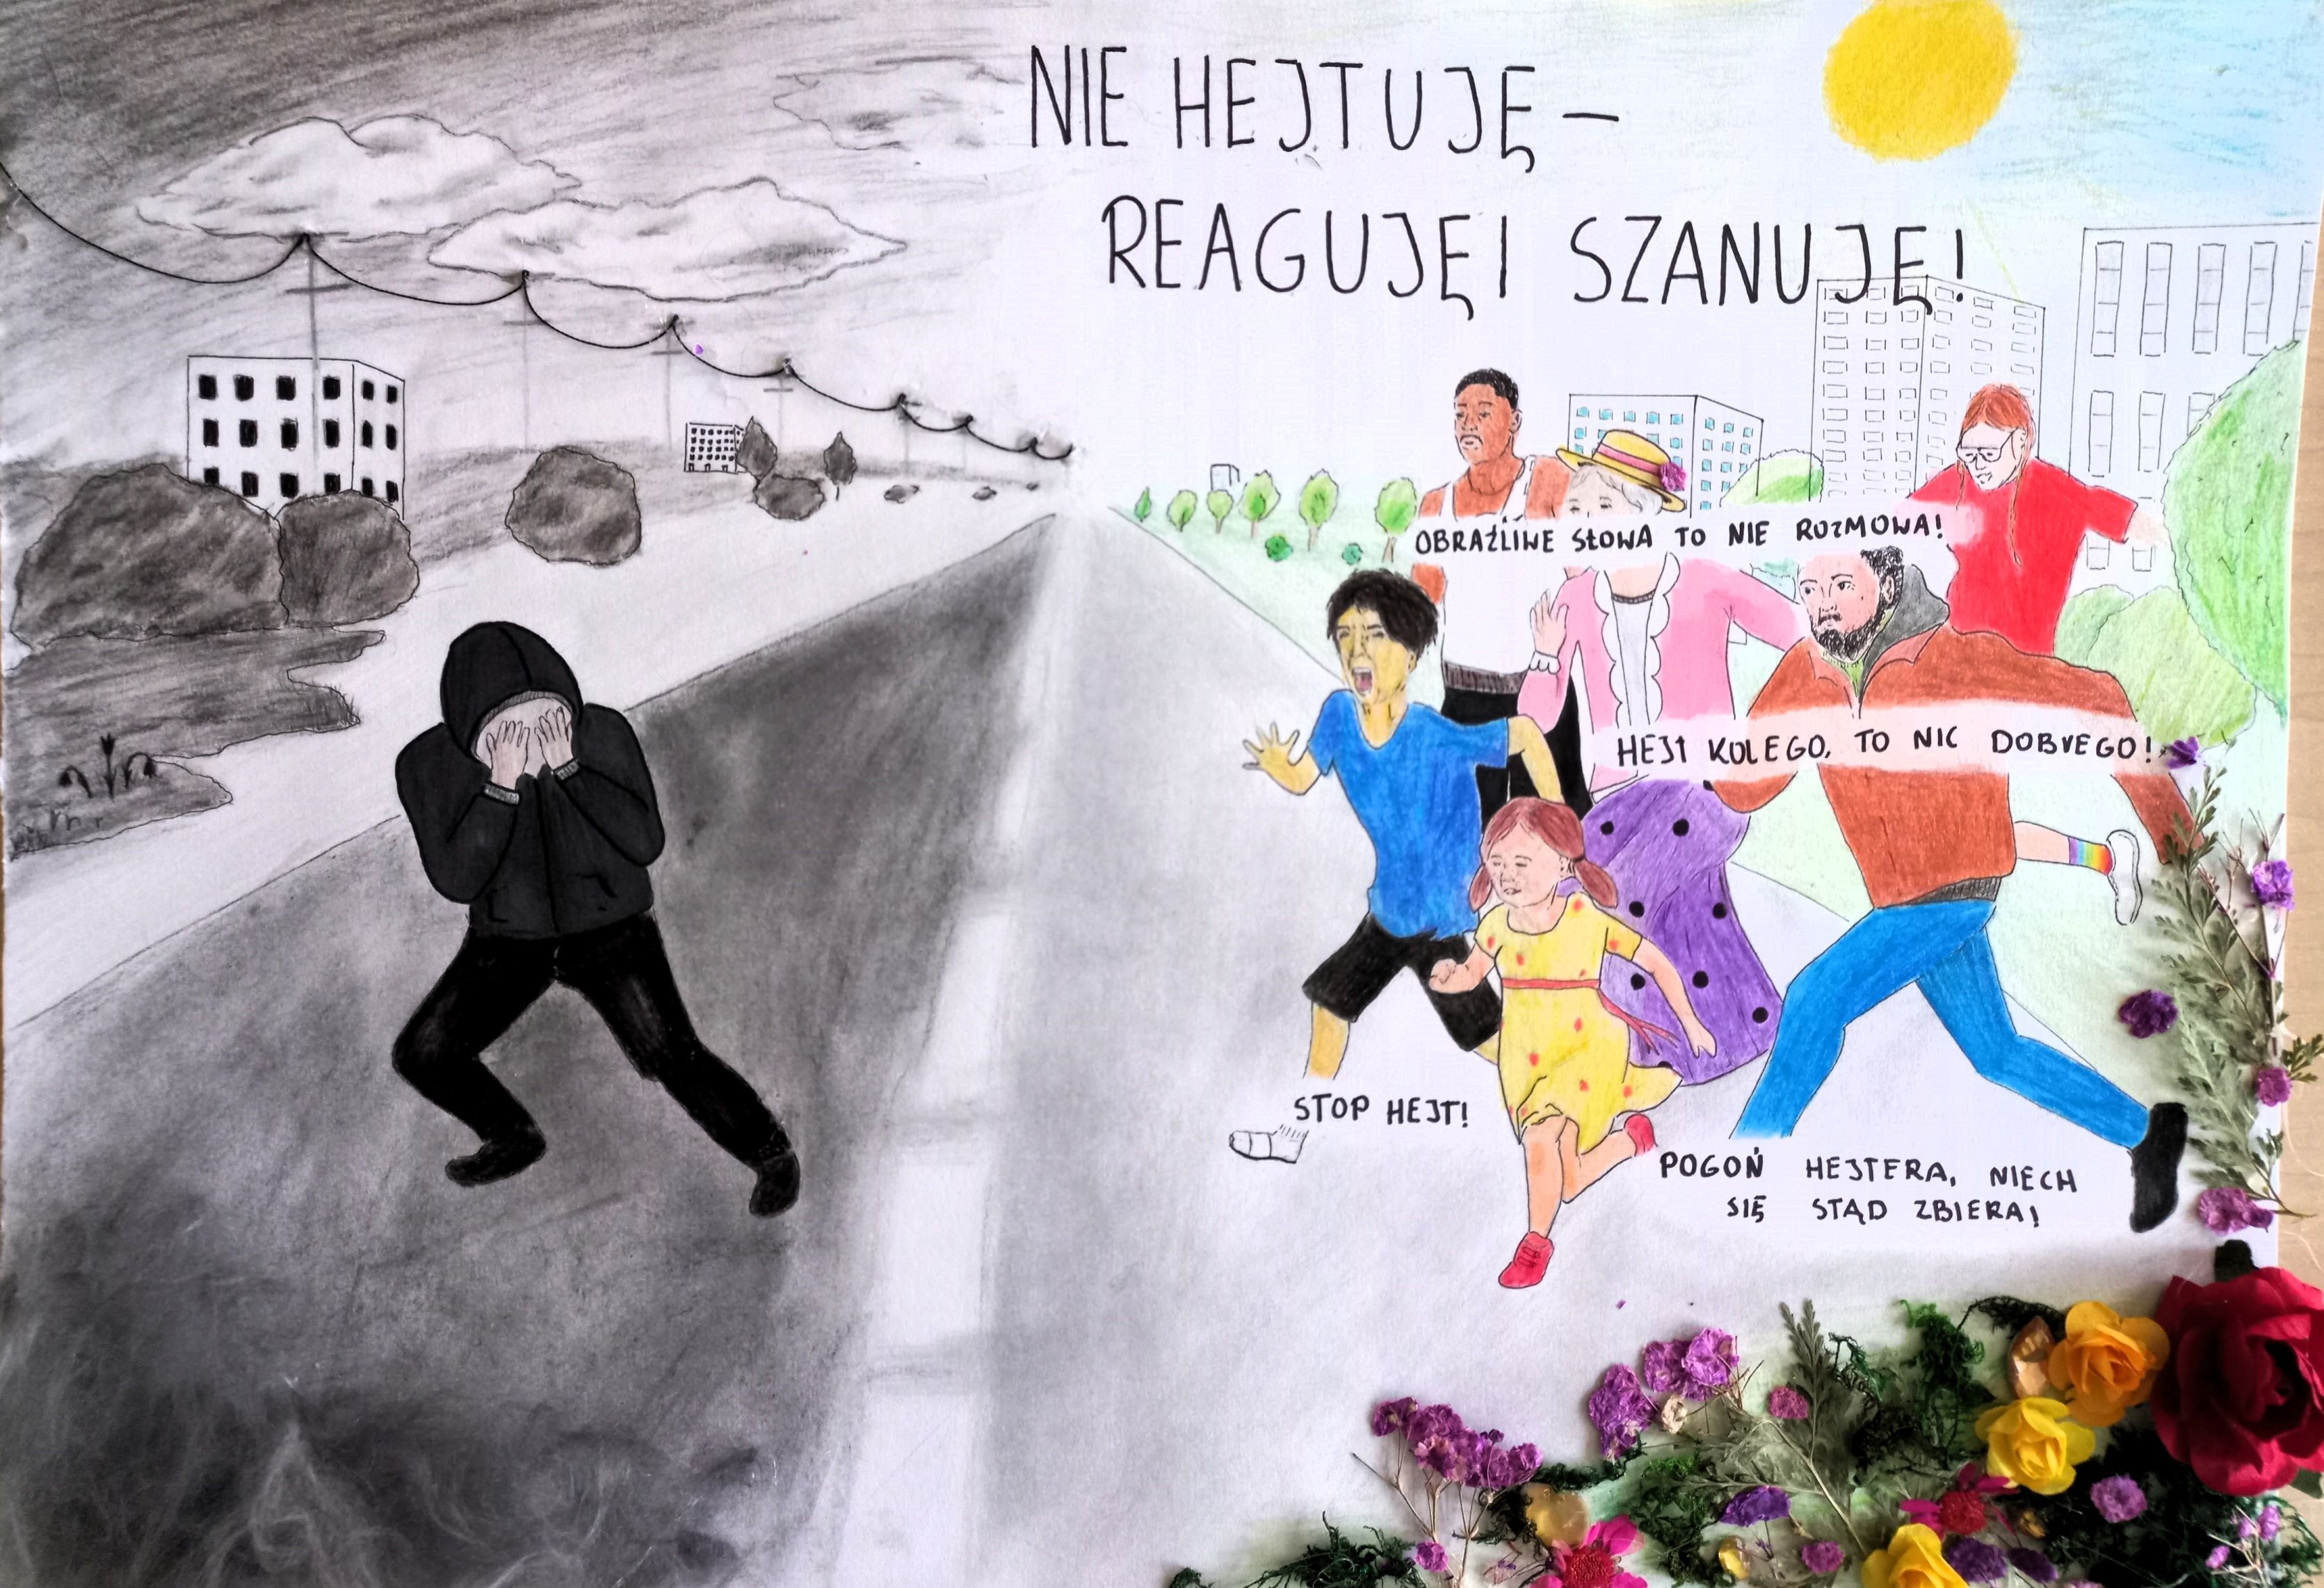 NIE HEJTUJĘ –
REAGUJĘ I SZANUJĘ!
OBRAŹLIWE SŁOWA TO NIE ROZMOWA!
HEJT KOLEGO, TO NIC DOBREGO!
STOP HEJT!
POGOŃ HEJTERA, NIECH
SIĘ STĄD ZBIERA!